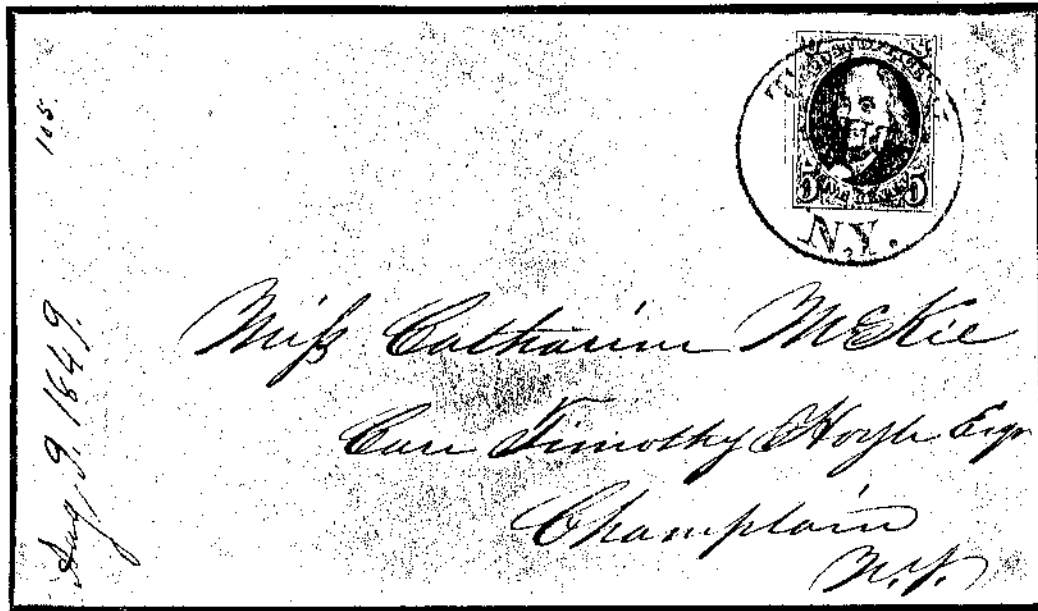 105.
Aug. 9. 1849.
5 5
N.Y.
Miss Catharine McKie
Care Timothy Hoyle Esqr
Champlain
N.Y.